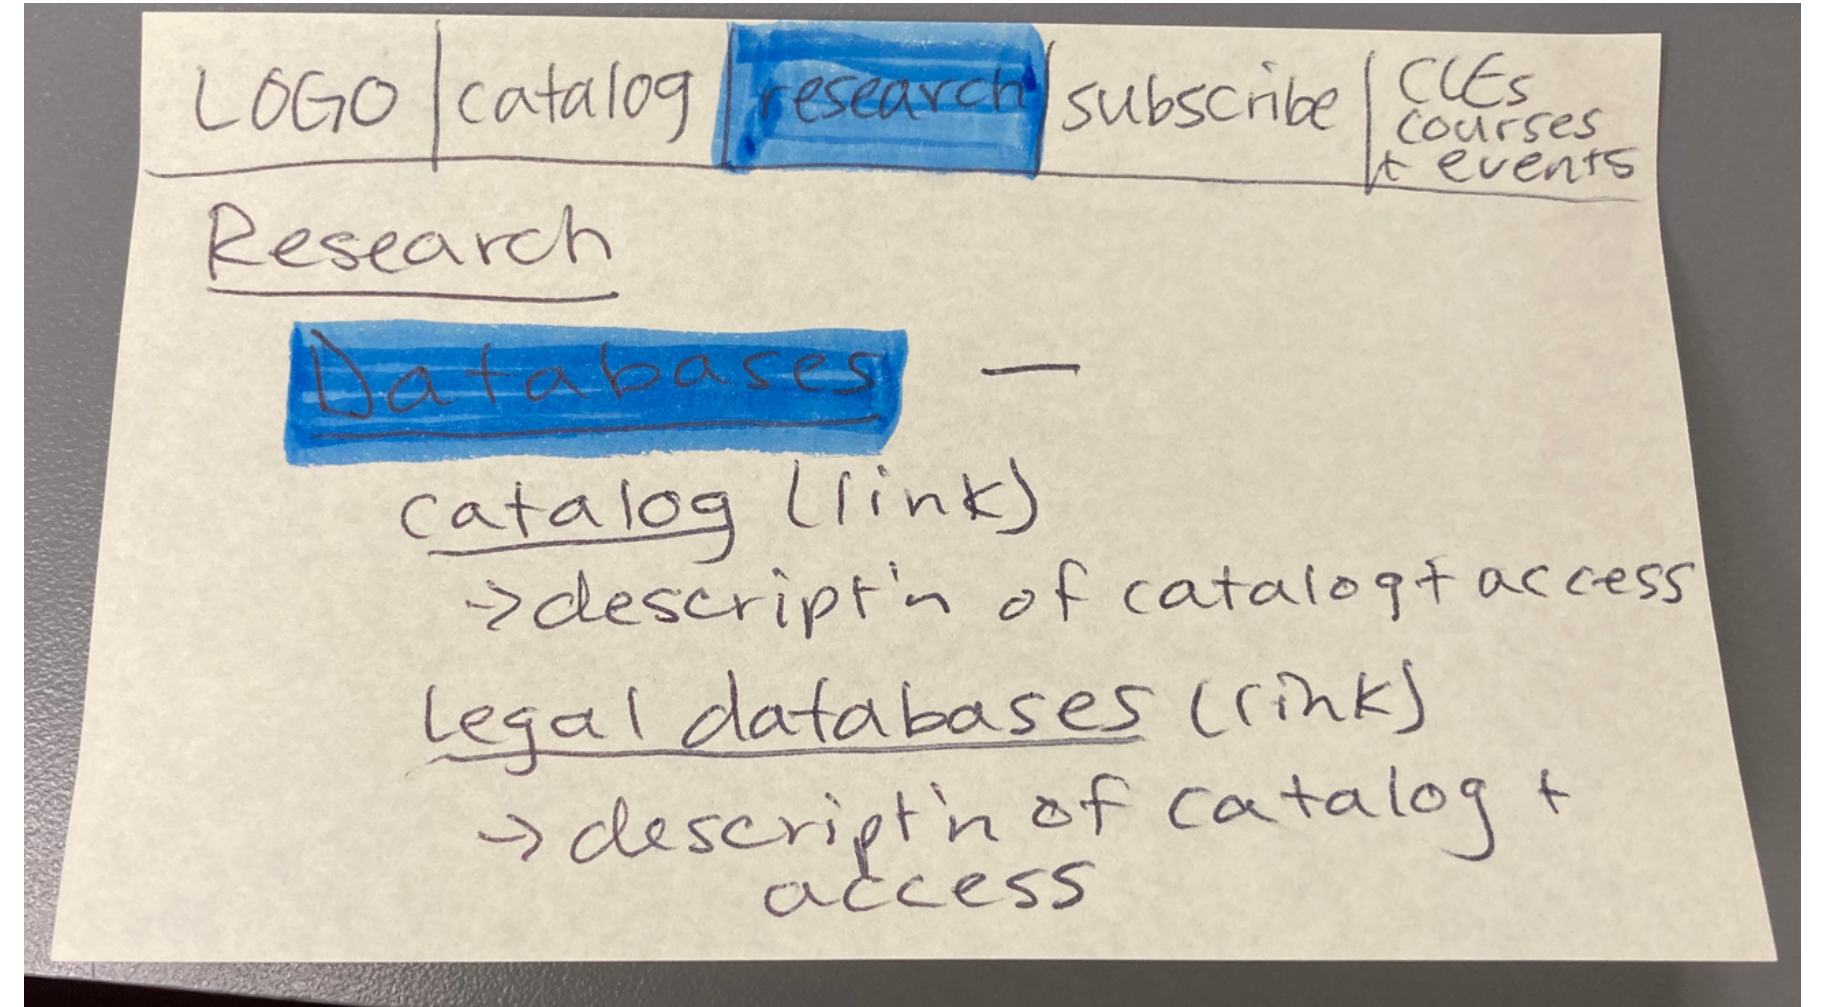 LOGO | catalog | research | subscribe | CLEs courses + events
Research
Databases —
catalog (link)
→ descript'n of catalog + access
legal databases (link)
→ descript'n of catalog +
access